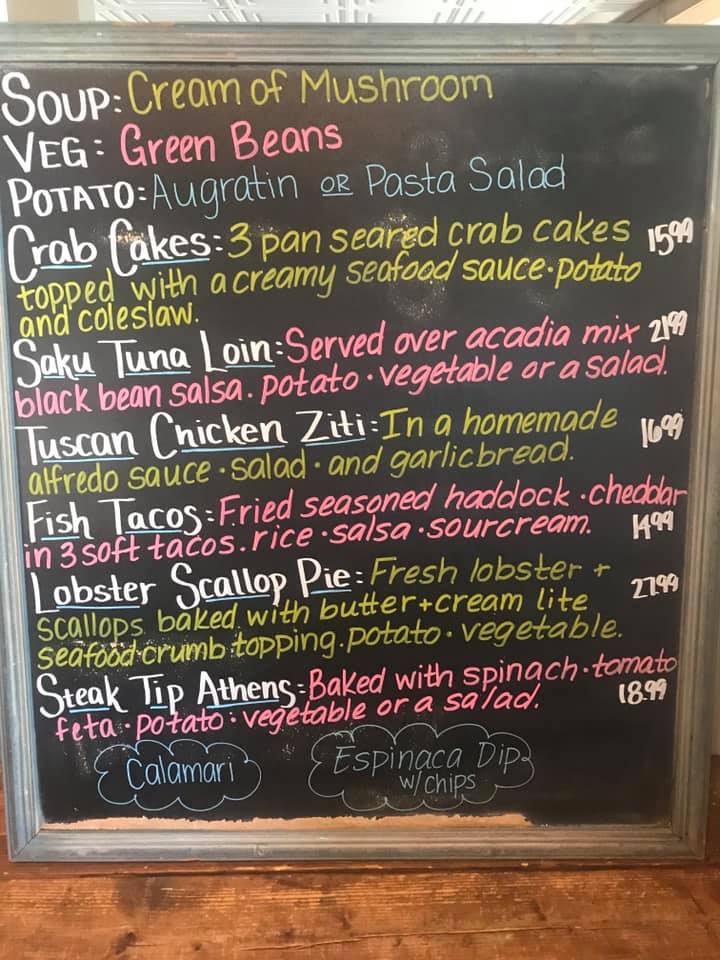 SOUP: Cream of Mushroom
VEG: Green Beans
POTATO: Augratin OR Pasta Salad
Crab Cakes: 3 pan seared crab cakes 15.99
topped with a creamy seafood sauce · potato
and coleslaw.
Saku Tuna Loin: Served over acadia mix 21.99
black bean salsa. potato · vegetable or a salad.
Tuscan Chicken Ziti: In a homemade 16.99
alfredo sauce · salad · and garlic bread.
Fish Tacos: Fried seasoned haddock · cheddar
in 3 soft tacos. rice · salsa · sourcream. 14.99
Lobster Scallop Pie: Fresh lobster + 27.99
scallops baked with butter + cream lite
seafood crumb topping. potato · vegetable.
Steak Tip Athens: Baked with spinach · tomato 18.99
feta · potato · vegetable or a salad.
Calamari
Espinaca Dip
w/ chips